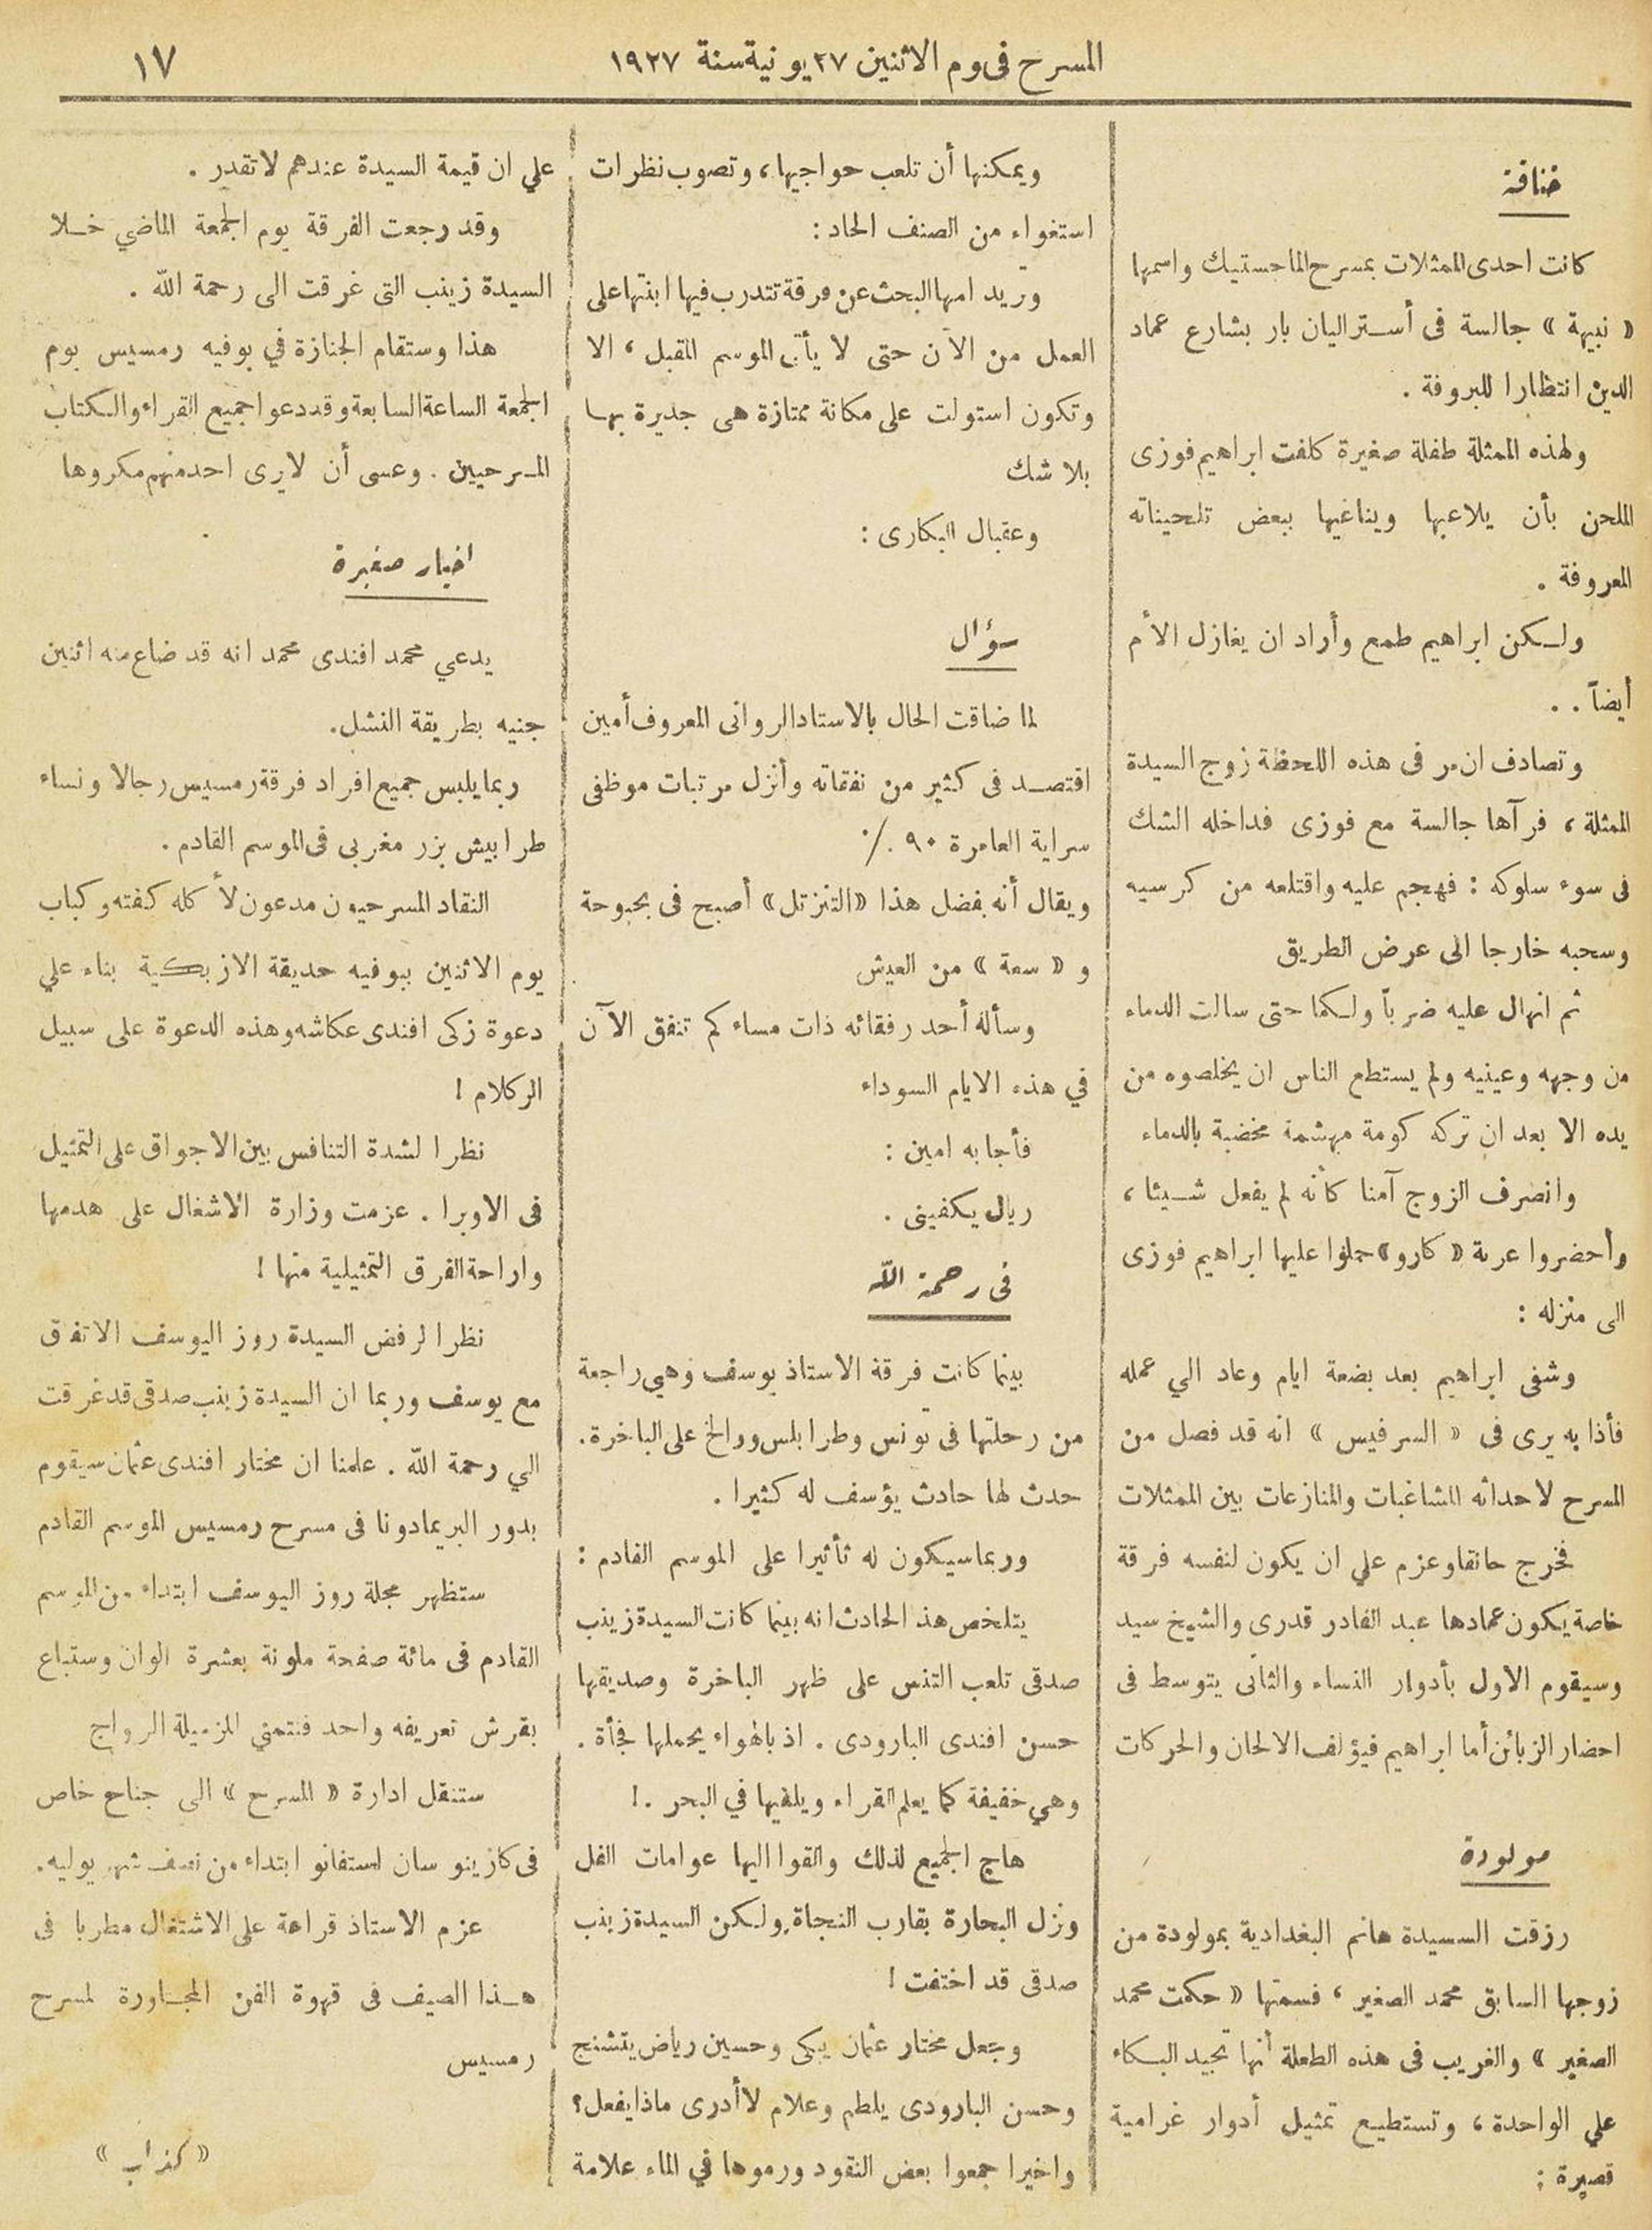 المسرح فى وم الاثنين ٢٧ يونية سنة ١٩٢٧
١٧
خناقة
كانت احدى الممثلات بمسرح الماجستيك واسمها
« نبيهة » جالسة فى أستراليان بار بشارع عماد
الدين انتظارا للبروفة .
ولهذه الممثلة طفلة صغيرة كلفت ابراهيم فوزى
الملحن بأن يلاعبها ويناغيها ببعض تلحيناته
المعروفة .
ولكن ابراهيم طمع وأراد ان يغازل الأم
أيضاً . .
وتصادف ان مر فى هذه اللحظة زوج السيدة
الممثلة ، فرآها جالسة مع فوزى فداخله الشك
فى سوء سلوكه : فهجم عليه واقتلعه من كرسيه
وسحبه خارجا الى عرض الطريق
ثم انهال عليه ضرباً ولكما حتى سالت الدماء
من وجهه وعينيه ولم يستطع الناس ان يخلصوه من
يده الا بعد ان تركه كومة مهشمة مخضبة بالدماء
وانصرف الزوج آمنا كأنه لم يفعل شيئا ،
وأحضروا عربة « كارو» حملوا عليها ابراهيم فوزى
الى منزله :
وشفى ابراهيم بعد بضعة ايام وعاد الي عمله
فأذا به يرى فى « السرفيس » انه قد فصل من
المسرح لاحداثه المشاغبات والمنازعات بين الممثلات
فخرج حانقا وعزم علي ان يكون لنفسه فرقة
خاصة يكون عمادها عبد القادر قدرى والشيخ سيد
وسيقوم الاول بأدوار النساء والثانى يتوسط فى
احضار الزبائن أما ابراهيم فيؤلف الالحان والحركات
مولودة
رزقت السسيدة هانم البغدادية بمولودة من
زوجها السابق محمد الصغير ، فسمتها « حكمت محمد
الصغير » والغريب فى هذه الطفلة أنها تجيد البكاء
علي الواحدة ، وتستطيع تمثيل أدوار غرامية
قصيرة :
ويمكنها أن تلعب حواجبها ، وتصوب نظرات
استغواء من الصنف الحاد :
وتريد امها البحث عن فرقة تتدرب فيها ابنتها على
العمل من الآن حتى لا يأتى الموسم المقبل ، الا
وتكون استولت على مكانة ممتازة هى جديرة بها
بلا شك
وعقبال البكارى :
سؤال
لما ضاقت الحال بالاستاد الروانى المعروف أمين
اقتصد فى كثير من نفقاته وأنزل مرتبات موظفى
سراية العامرة ٩٠ ٪
ويقال أنه بفضل هذا «التنزتل» أصبح فى بحبوحة
و « سعة » من العيش
وسأله أحد رفقائه ذات مساء كم تنفق الآن
في هذه الايام السوداء
فأجابه امين :
ريال يكفينى .
فى رحمة الله
بينما كانت فرقة الاستاذ يوسف وهبي راجعة
من رحلتها فى تونس وطرابلس ووالخ على الباخرة .
حدث لها حادث يؤسف له كثيرا .
وربما سيكون له تأثيرا على الموسم القادم :
يتلخص هذ الحادث انه بينما كانت السيدة زينب
صدقى تلعب التنس على ظهر الباخرة وصديقها
حسن افندى البارودى . اذ بالهواء يحملها فجأة .
وهي خفيفة كما يعلم القراء ويلقيها في البحر . !
هاج الجميع لذلك والقوا اليها عوامات الفل
ونزل البحارة بقارب النجاة ولكن السيدة زينب
صدقى قد اختفت !
وجعل مختار عثمان يبكى وحسين رياض يتشنج
وحسن البارودى يلطم وعلام لا أدرى ماذا يفعل ؟
واخيرا جمعوا بعض النقود ورموها في الماء علامة
علي ان قيمة السيدة عندهم لا تقدر .
وقد رجعت الفرقة يوم الجمعة الماضي خلا
السيدة زينب التى غرقت الى رحمة الله .
هذا وستقام الجنازة في بوفيه رمسيس يوم
الجمعة الساعة السابعة وقد دعوا جميع القراء والكتاب
المسرحيين . وعسى أن لا يرى احد منهم مكروها
اخبار صغيرة
يدعي محمد افندى محمد انه قد ضاع منه اثنين
جنيه بطريقة النشل .
ربما يلبس جميع افراد فرقة رمسيس رجالا ونساء
طرابيش بزر مغربى فى الموسم القادم .
النقاد المسرحيون مدعون لأكله كفته وكباب
يوم الاثنين ببوفيه حديقة الازبكية بناء علي
دعوة زكى افندى عكاشه وهذه الدعوة على سبيل
الركلام !
نظرا لشدة التنافس بين الاجواق على التمثيل
فى الاوبرا . عزمت وزارة الاشغال على هدمها
واراحة الفرق التمثيلية منها !
نظرا لرفض السيدة روز اليوسف الاتفاق
مع يوسف وربما ان السيدة زينب صدقى قد غرقت
الي رحمة الله . علمنا ان مختار افندى عثمان سيقوم
بدور البريمادونا فى مسرح رمسيس الموسم القادم
ستظهر مجلة روز اليوسف ابتداء من الموسم
القادم فى مائة صفحة ملونة بعشرة الوان وستباع
بقرش تعريفه واحد فنتمني المزميلة الرواج
ستنقل ادارة « المسرح » الى جناح خاص
فى كازينو سان استفانو ابتداء من نصف شهر يوليه .
عزم الاستاذ قراعة على الاشتغال مطربا فى
هذا الصيف فى قهوة الفن المجاورة لمسرح
رمسيس
« كذاب »